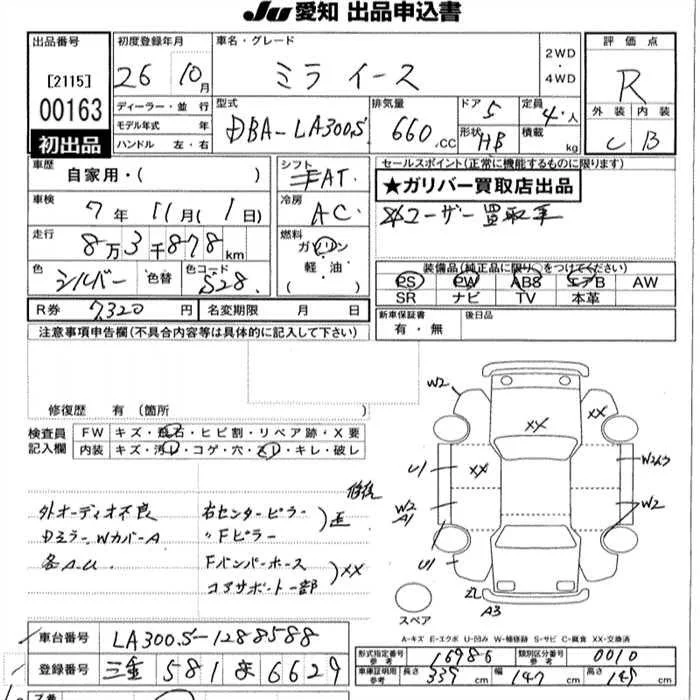 JU 愛知 出品申込書
出品番号
[2115]
00163
初出品
初度登録年月
26年10月
車名・グレード
ミライース
2WD・4WD
評価点
R
外装 内装
C B
ディーラー・並行
モデル年式 年
ハンドル 左・右
型式
DBA-LA300S
排気量
660.CC
ドア
5
形状
HB
定員
4.人
積載
kg
車歴
自家用・( )
シフト
FAT.
セールスポイント(正常に機能するものに限ります)
★ガリバー買取店出品
ユーザー買取車
車検
7年11月(1日)
冷房
AC
走行
8万3千878km
燃料
ガソリン
軽・油
色
シルバー
色替
色コード
S28.
装備品(純正品に限り○をつけてください)
PS PW ABS エアB AW
SR ナビ TV 本革
R券 7,320円
名変期限 月 日
新車保証書
有・無
後日品
注意事項申告欄(不具合内容等は具体的に記入して下さい)
修復歴 有(箇所 )
検査員
記入欄
FW キズ・飛石・ヒビ割・リペア跡・X要
内装 キズ・汚レ・コゲ・穴・スレ・キレ・破レ
外オーディオ不良
DミラーWカバーA
各A.U.
右センターピラー
〃Fピラー
修復
Fバンパーホース
コアサポート一部
XX
W2
XX
XX
U1
XX
W2
A1
U1
W2
ヱL
A3
スペア
A-キズ E-エクボ U-凹み W-補修跡 S-サビ C-腐食 XX-交換済
車台番号
LA300S-1288588
登録番号
三重 581 6629
形式指定番号
参考
16986
類別区分番号
参考
0010
車庫証明用
参考
長さ 339cm
幅 147cm
高さ 149cm